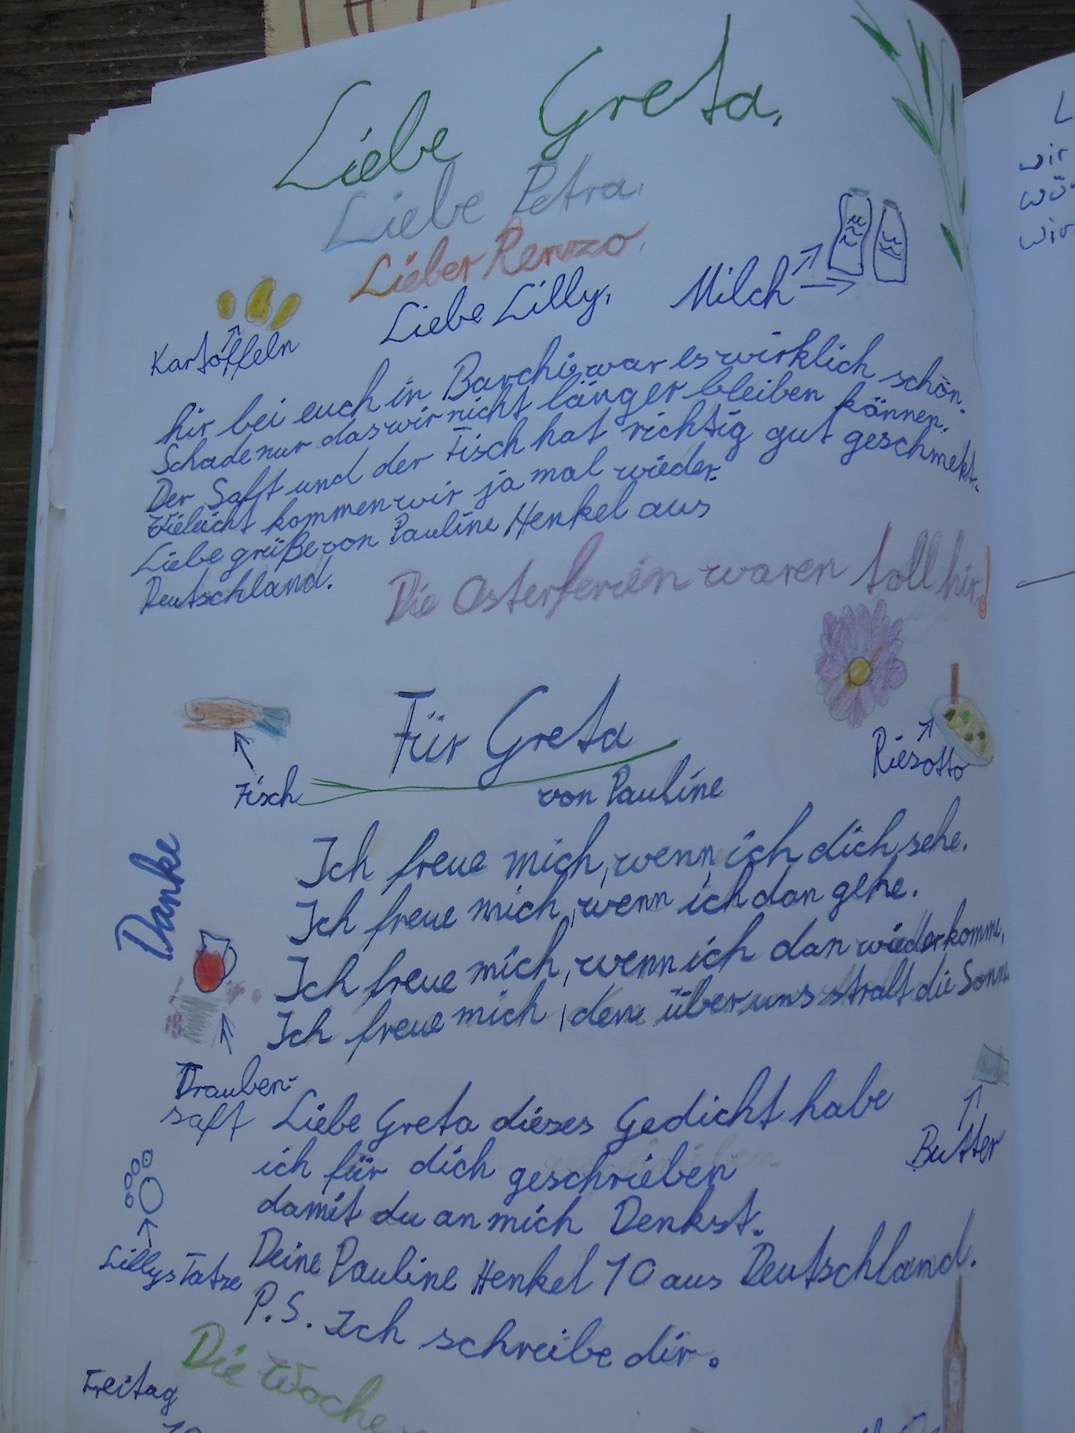 Liebe Greta,
Liebe Petra,
Lieber Renzo,
Liebe Lilly,
Milch
Kartoffeln
hir bei euch in Barchi war es wirklich schön.
Schade nur das wir nicht länger bleiben können.
Der Safft und der Fisch hat richtig gut geschmekt.
Vieleicht kommen wir ja mal wieder.
Liebe grüße von Pauline Henkel aus
Deutschland.
Die Osterferien waren toll hir!
Für Greta
Fisch
von Pauline
Riesotto
Danke
Ich freue mich, wenn ich dich sehe.
Ich freue mich, wenn ich dan gehe.
Ich freue mich, wenn ich dan wiederkomme,
Ich freue mich, denn über uns stralt die Sonne
Trauben-
saft
Liebe Greta dieses Gedicht habe
ich für dich geschrieben
damit du an mich Denkst.
Butter
Lillys Tatze
Deine Pauline Henkel 10 aus Deutschland.
P.S. Ich schreibe dir.
Die Woche
Freitag
wir
wir